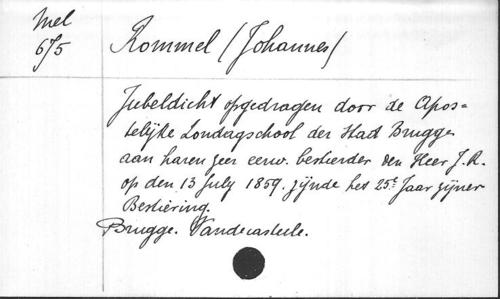 Mel
675
Rommel (Johannes)
Jubeldicht opgedragen door de Apos-
telijke Zondagschool der Stad Brugge
aan haren zeer eerw. bestierder den Heer J. R.
op den 13 July 1859. zijnde het 25e Jaar zijner
Bestiering.
Brugge. Vandecasteele.